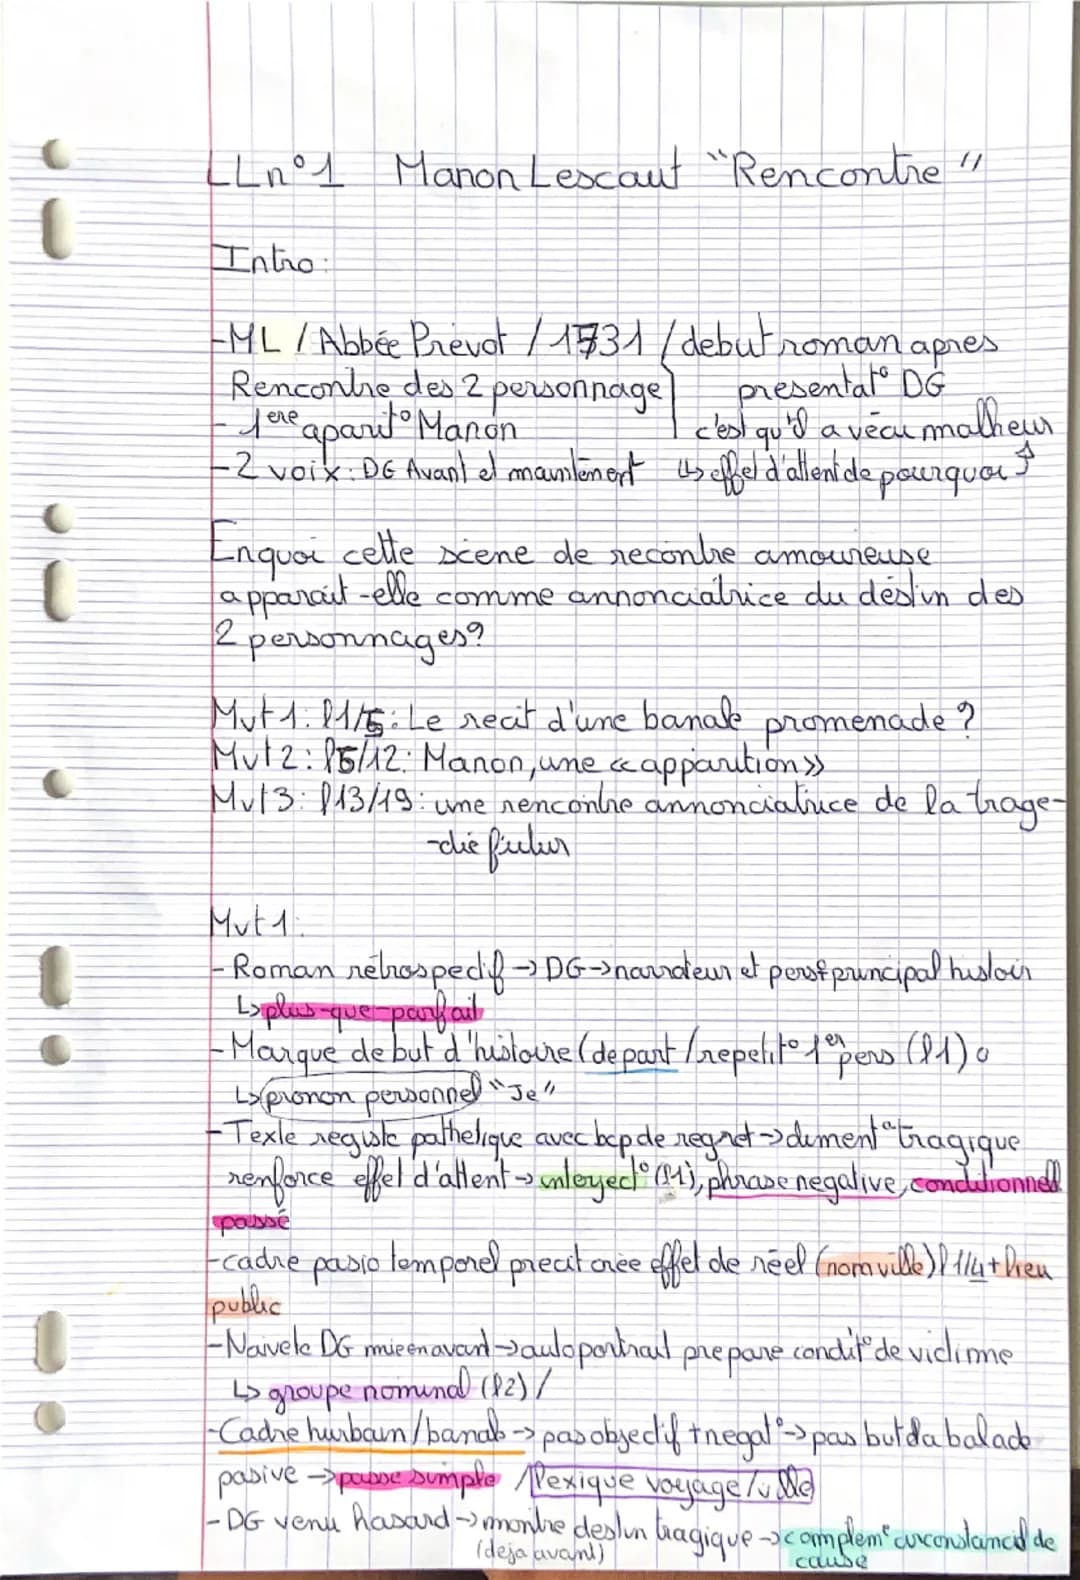 LLn°1 Manon Lescaut "Rencontre"
Intro:
-ML / Abbée Prévot / 1731 / debut roman apres
Rencontre des 2 personnage presentat° DG
- 1ere aparit° Manon c'est qu'il a vécu malheur
-2 voix: DG Avant et maintenent ↳ effet d'attent de pourquoi ?
Enquoi cette scene de recontre amoureuse
apparait-elle comme annonciatrice du destin des
2 personnages?
Mvt 1: l1/5: Le recit d'une banale promenade ?
Mvt 2: l5/12: Manon, une «apparition»
Mvt3: l13/19: une rencontre annonciatrice de la trage-
-die futur
Mvt 1:
- Roman rétrospectif → DG → narrateur et perso principal histoir
↳ plus-que-parfait
- Marque debut d'histoire (depart / repetit° 1er pers (l1)
↳ pronon personnel "Je"
- Texte registe pathetique avec bcp de regret → tragique
renforce effet d'attent → interject° (l1), phrase negative, conditionnel
passé
-cadre pasio temporel precit crée effet de réel (nom ville) l 1/4 + lieu
public
-Naivete DG mise en avant → autoportrait prepare condit° de victime
↳ groupe nominal (l2) /
-Cadre hurbain/banal → pas objectif + negat° → pas but da balade
pasive → passe simple / lexique voyage/ville
- DG venu hasard → montre destin tragique → complemt circonstanciel de
(deja avant) cause